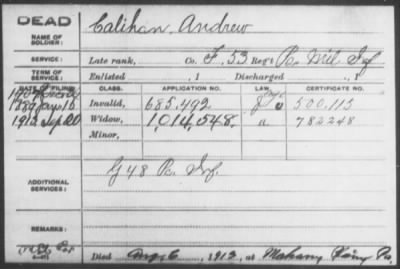 DEAD
NAME OF SOLDIER: Calihan, Andrew
SERVICE: Late rank, Co. F, 53 Reg't Pa. Mil Inf
TERM OF SERVICE: Enlisted , 1 Discharged , 1
DATE OF FILING. CLASS. APPLICATION NO. LAW. CERTIFICATE NO.
Invalid, 685.492 500.115
Widow, 1,014,548. " 782248
Minor,
ADDITIONAL SERVICES: G 48 Pa. Inf.
REMARKS:
Died Aug 6, 1912, at Mahany Pa.